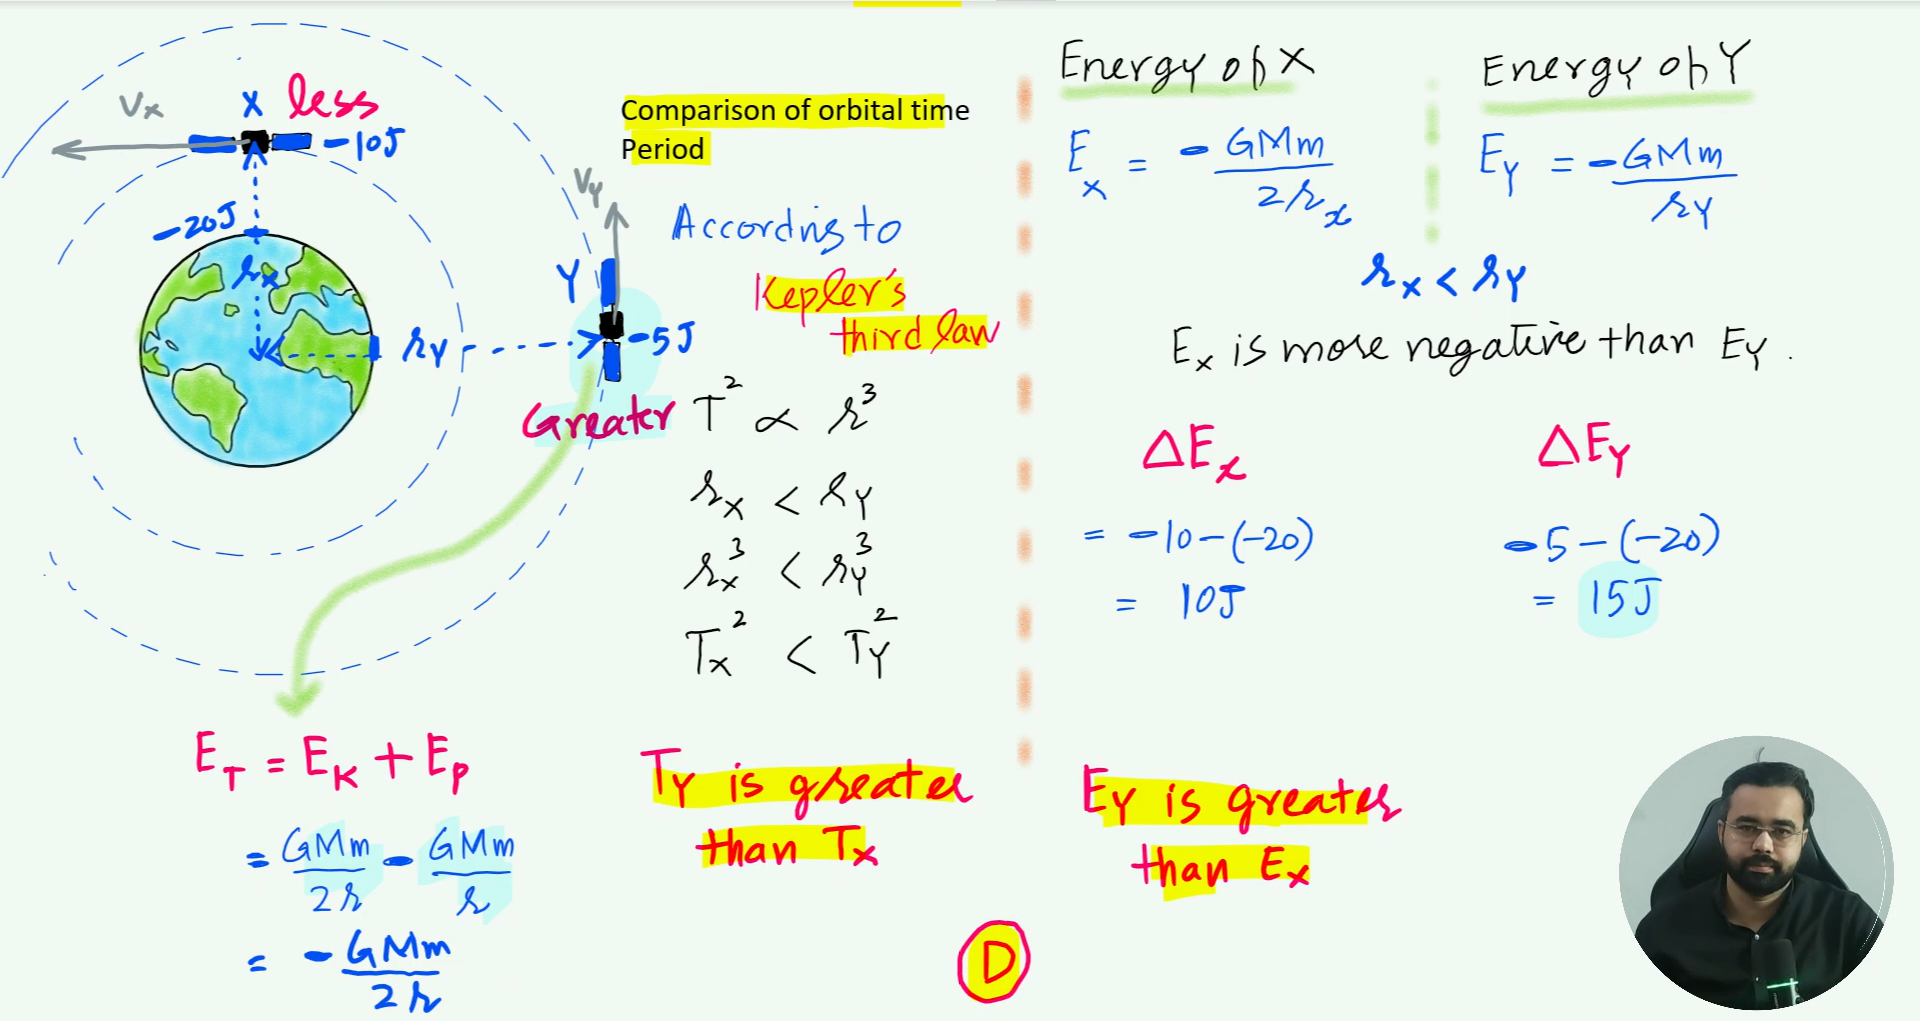 Vx
X less
-10J
-20J
rx
Vy
Y
-5J
ry
Greater
E_T = E_K + E_P
= GMm/2r - GMm/r
= -GMm/2r
Comparison of orbital time
Period
According to
Kepler's
third law
T² ∝ r³
rx < ry
rx³ < ry³
Tx² < Ty²
Ty is greater
than Tx
Energy of X
Ex = -GMm/2rx
Energy of Y
Ey = -GMm/ry
rx < ry
Ex is more negative than Ey.
ΔEx
= -10-(-20)
= 10J
ΔEy
-5-(-20)
= 15J
Ey is greater
than Ex
D